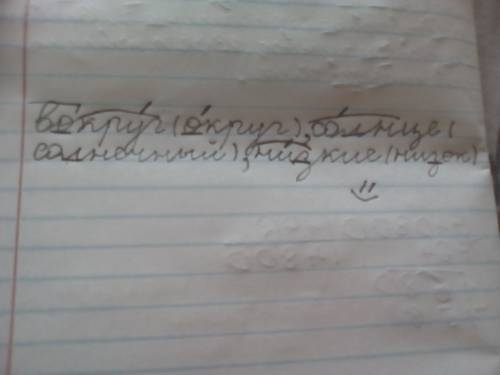 вокруг(округ), солнце(
солнечный), низкие(низок)